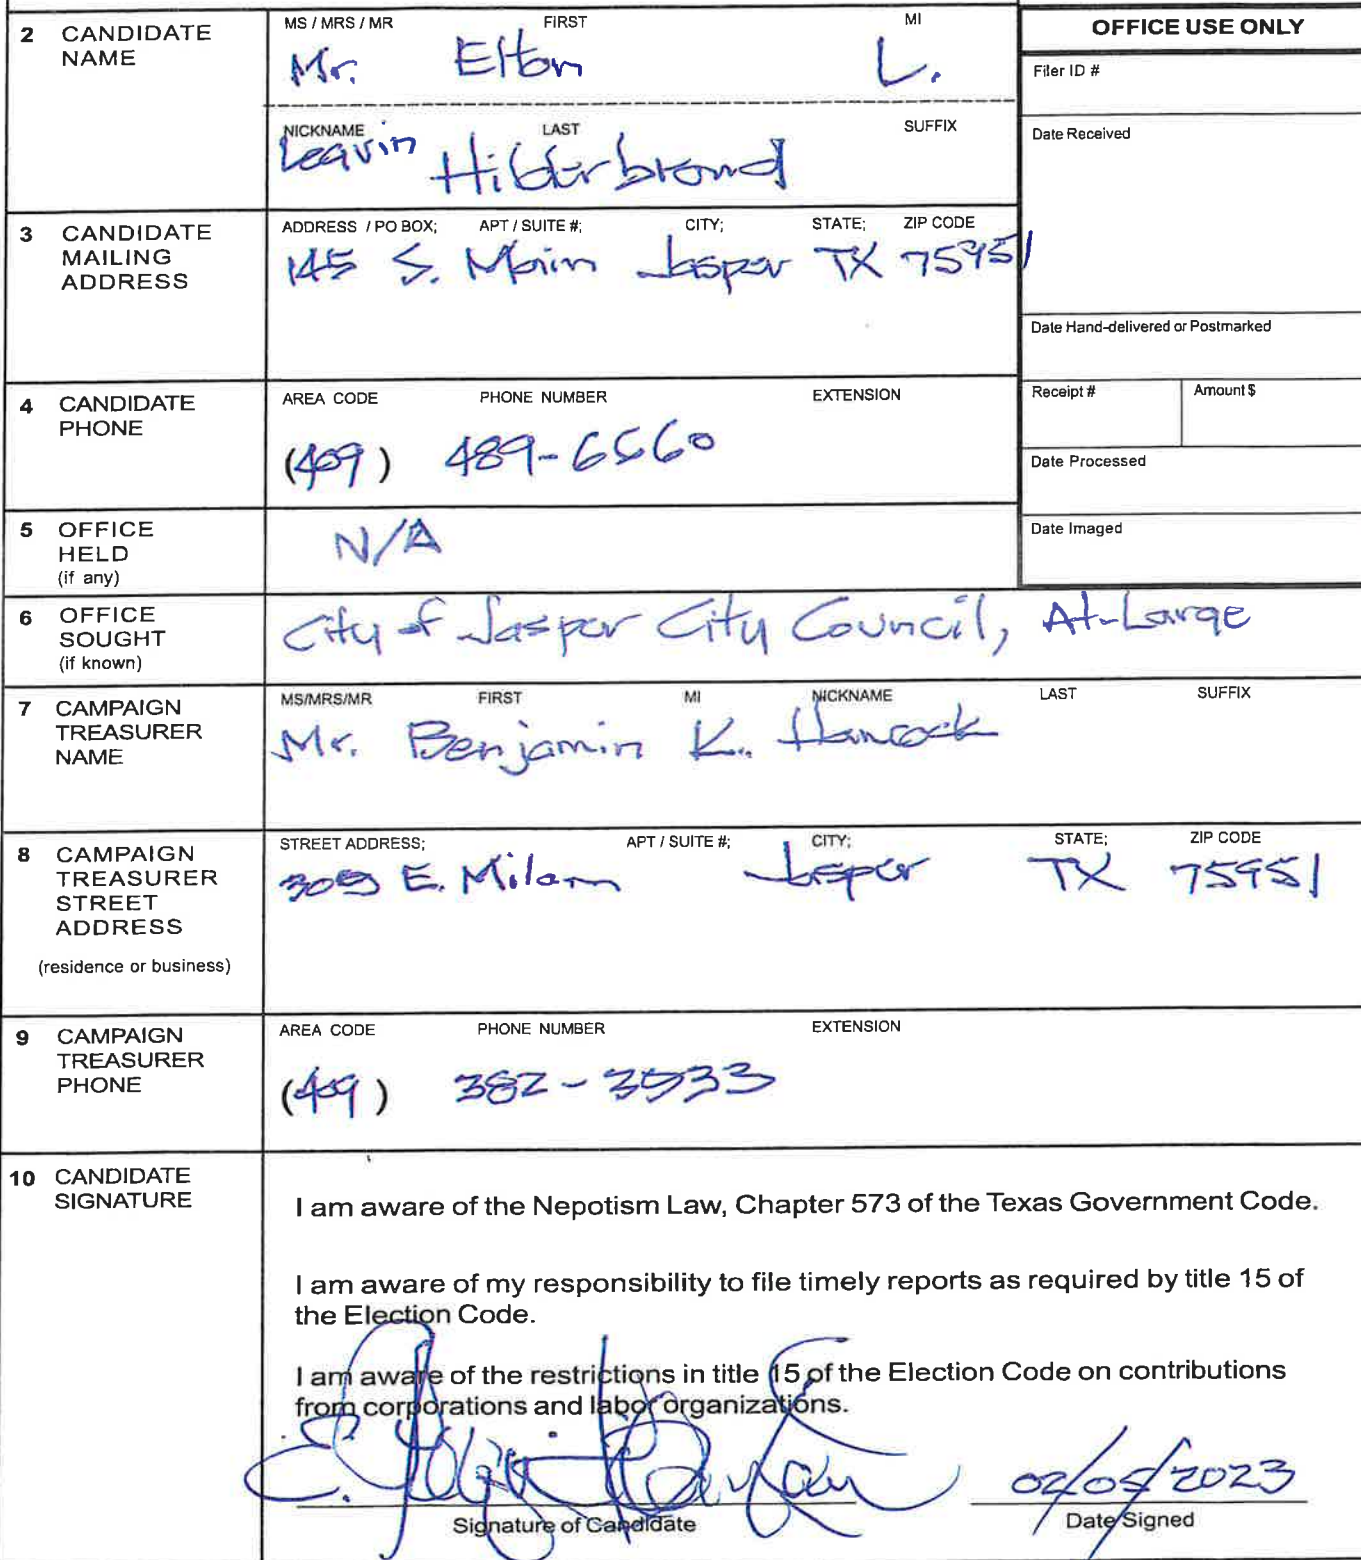 2 CANDIDATE NAME
MS / MRS / MR FIRST MI
Mr. Elton L.
NICKNAME LAST SUFFIX
Leavin Hilderbrand
OFFICE USE ONLY
Filer ID #
Date Received
Date Hand-delivered or Postmarked
Receipt # Amount $
Date Processed
Date Imaged
3 CANDIDATE MAILING ADDRESS
ADDRESS / PO BOX; APT / SUITE #; CITY; STATE; ZIP CODE
145 S. Main Jasper TX 75951
4 CANDIDATE PHONE
AREA CODE PHONE NUMBER EXTENSION
(409) 489-6560
5 OFFICE HELD (if any)
N/A
6 OFFICE SOUGHT (if known)
City of Jasper City Council, At-Large
7 CAMPAIGN TREASURER NAME
MS/MRS/MR FIRST MI NICKNAME LAST SUFFIX
Mr. Benjamin K. Hancock
8 CAMPAIGN TREASURER STREET ADDRESS
(residence or business)
STREET ADDRESS; APT / SUITE #; CITY; STATE; ZIP CODE
E. Milam Jasper TX 75951
9 CAMPAIGN TREASURER PHONE
AREA CODE PHONE NUMBER EXTENSION
(409) 382-3533
10 CANDIDATE SIGNATURE
I am aware of the Nepotism Law, Chapter 573 of the Texas Government Code.
I am aware of my responsibility to file timely reports as required by title 15 of
the Election Code.
I am aware of the restrictions in title 15 of the Election Code on contributions
from corporations and labor organizations.
02/05/2023
Signature of Candidate Date Signed